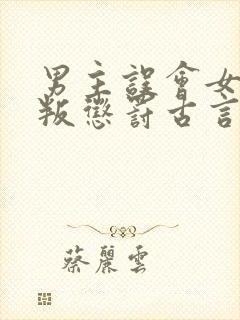 男主誤會女
叛懲罰古言
蔡麗雲